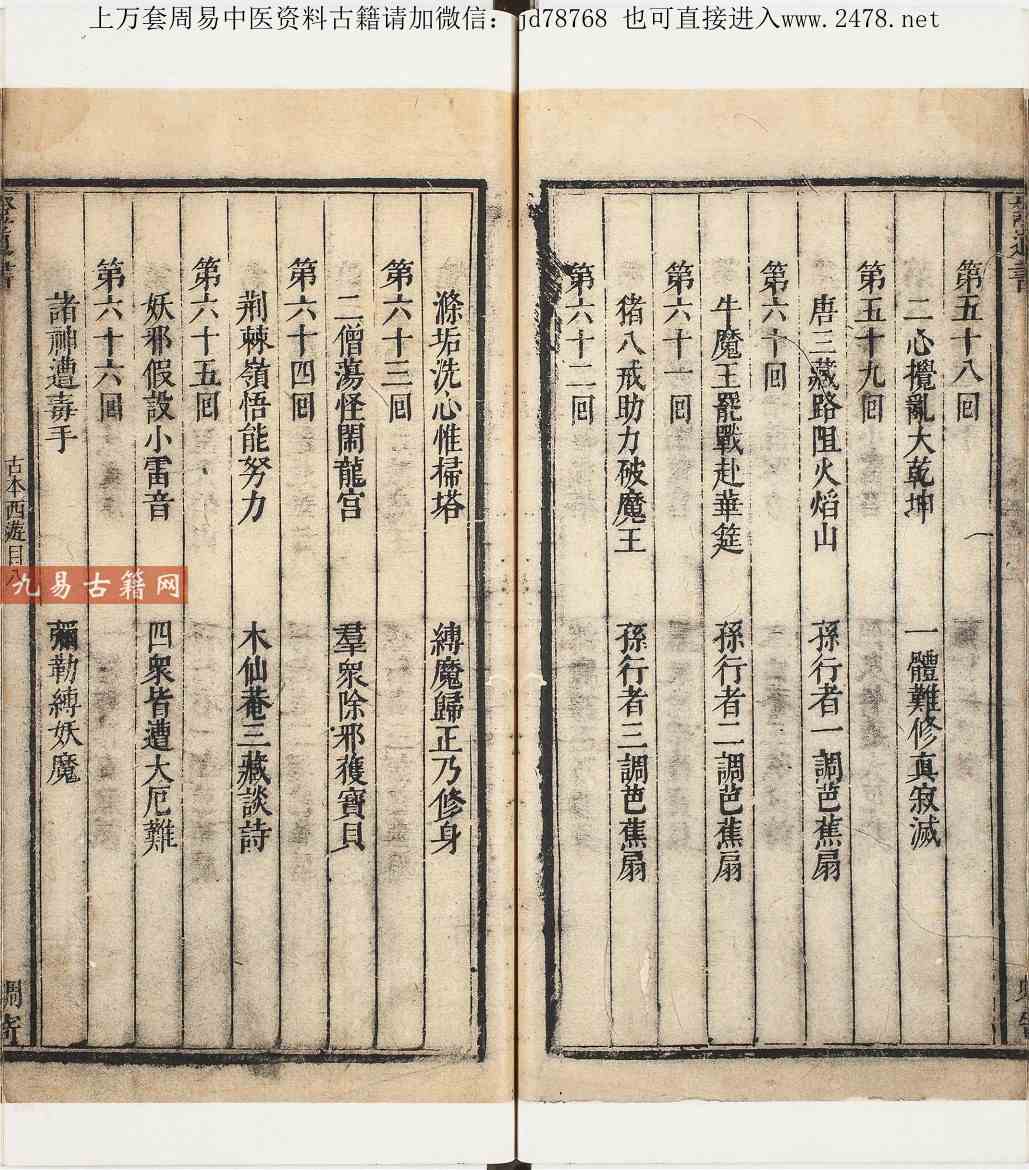 上万套周易中医资料古籍请加微信：jd78768 也可直接进入www.2478.net
第五十八回
二心攪亂大乾坤 一體難修真寂滅
第五十九回
唐三藏路阻火焰山 孫行者一調芭蕉扇
第六十回
牛魔王罷戰赴華筵 孫行者二調芭蕉扇
第六十一回
猪八戒助力破魔王 孫行者三調芭蕉扇
第六十二回
滌垢洗心惟掃塔 縛魔歸正乃修身
第六十三回
二僧蕩怪閙龍宫 羣衆除邪獲寶貝
第六十四回
荆棘嶺悟能努力 木仙菴三藏談詩
第六十五回
妖邪假設小雷音 四衆皆遭大厄難
第六十六回
諸神遭毒手 彌勒縛妖魔
古本西遊目八
九易古籍网